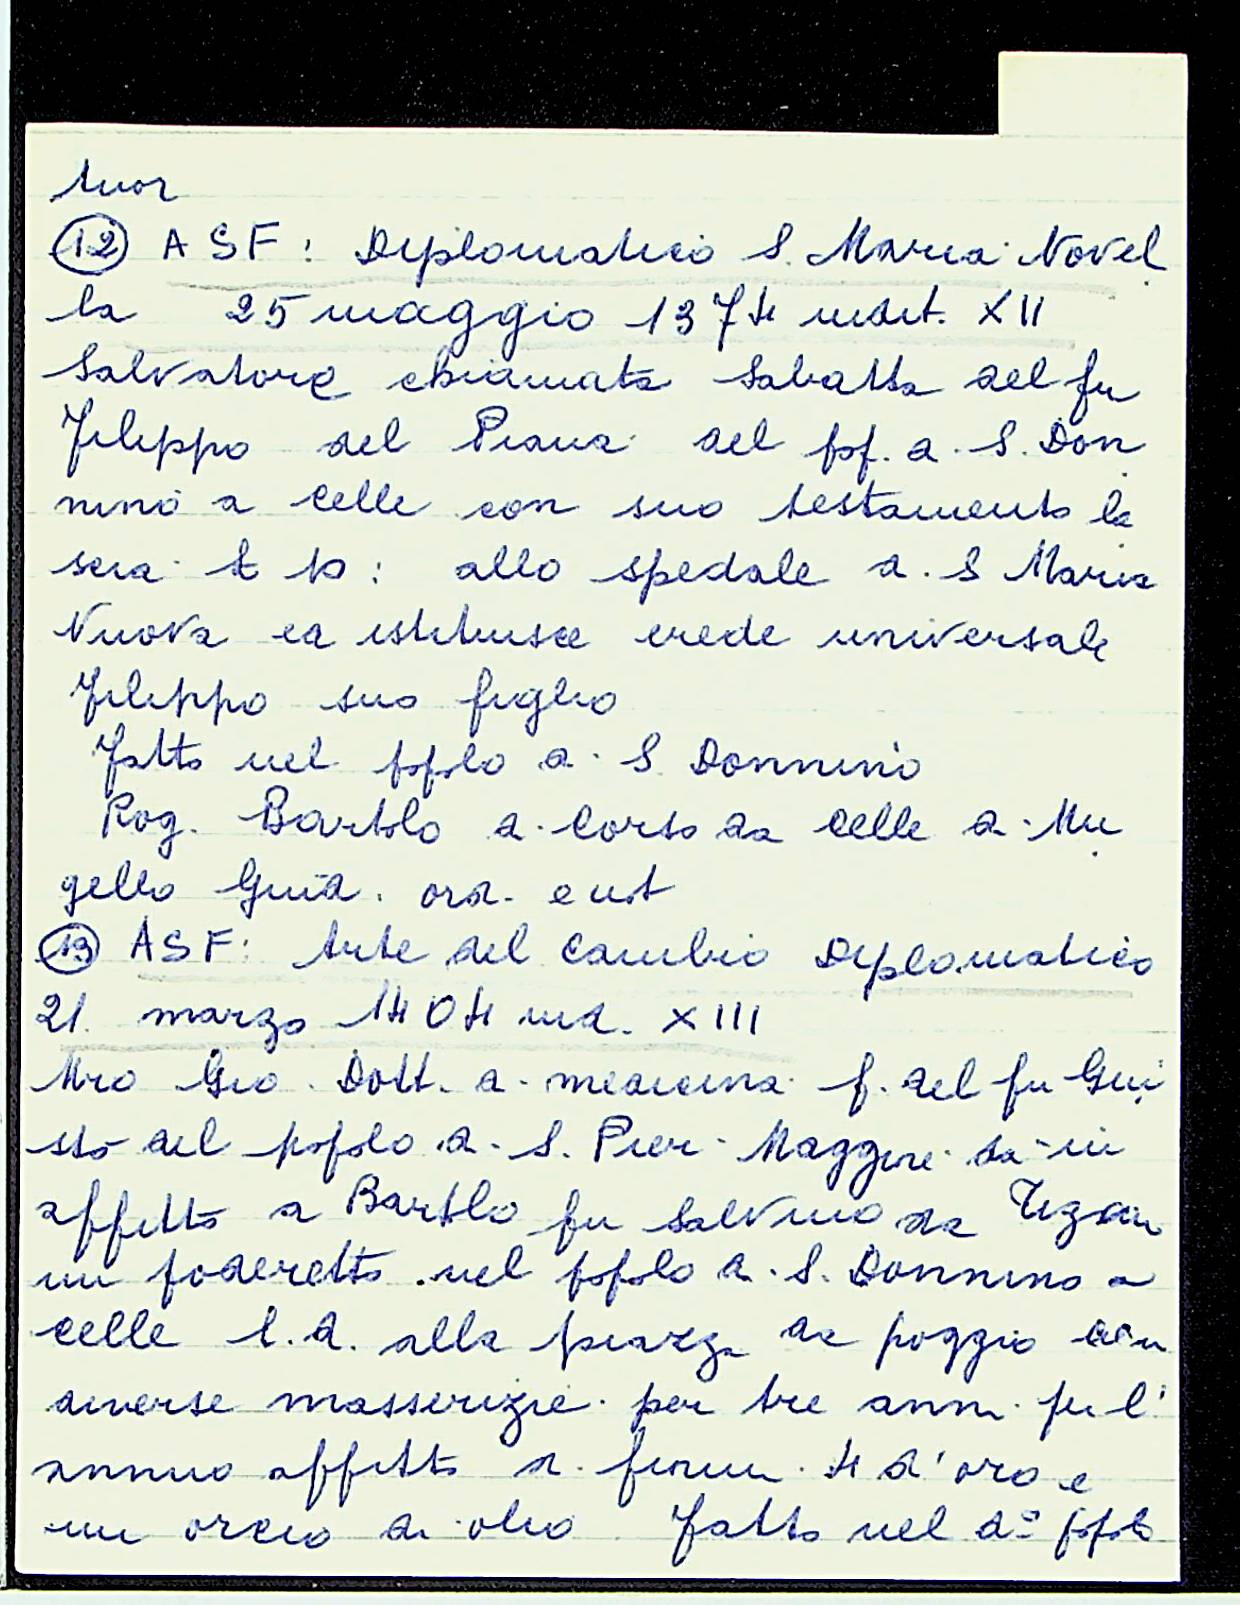 tuor
(12) ASF: Diplomatico S. Maria Novel
la 25 maggio 1374 indit. XII
Salvatore chiamata Sabatta del fu
Filippo del Piana del pop. d. S. Don
nino a Celle con suo testamento la
scia £ 10: allo spedale d. S Maria
Nuova ed istituisce erede universale
Filippo suo figlio
Fatto nel popolo d. S. Donnino
Rog. Bartolo d. Corso da Celle d. Mu
gello Giud. ord. e not
(13) ASF: Arte del Cambio Diplomatico
21. marzo 1404 ind. XIII
Mro Gio. Dott. d. medicina f. del fu Giu
sto del popolo d. S. Pier Maggiore da in
affitto a Bartolo fu Salvino da
un poderetto nel popolo d. S. Donnino a
Celle l. d. alla piazza da poggio con
diverse masserizie per tre anni per l'
annuo affitto d. fiorin. 4 d'oro e
un orcio di olio. Fatto nel do popolo